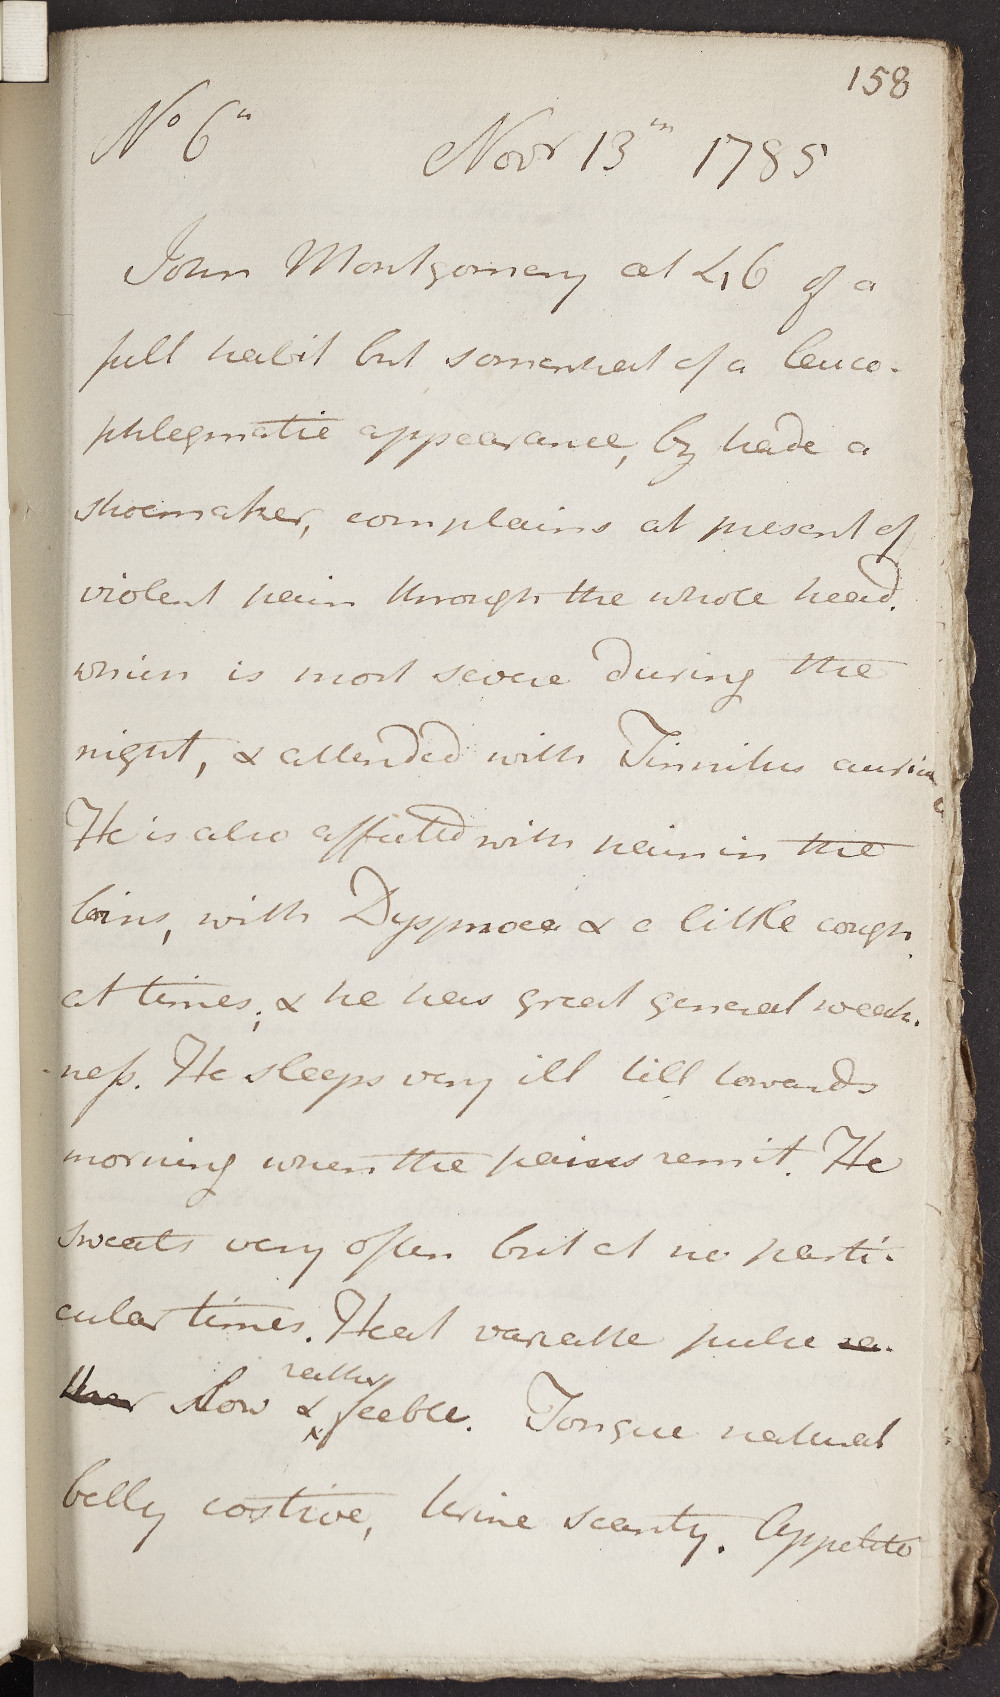 158
No 6th Novr 13th 1785
John Montgomery æt 46 of a
full habit but somewhat of a leuco-
phlegmatic appearance, by trade a
shoemaker, complains at present of
violent pain through the whole head.
which is most severe during the
night, & attended with Tinnitus aurium
He is also affected with pain in the
loins, with Dyspnoea & a little cough
at times; & he has great general weak-
ness. He sleeps very ill till towards
morning when the pains remit. He
sweats very often but at no parti-
cular times. Heat variable pulse ra-
ther slow & rather feeble. Tongue natural
belly costive, Urine scanty. Appetite